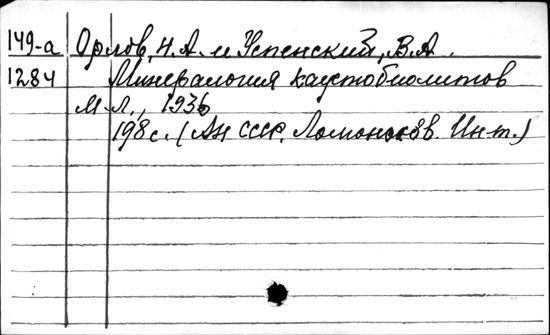 149-а Орлов, Н.А. и Успенский, В.А.
1284 Минералогия каустобиолитов
М-Л., 1936
198 с. (Ан СССР. Ломоносов. Ин-т.)